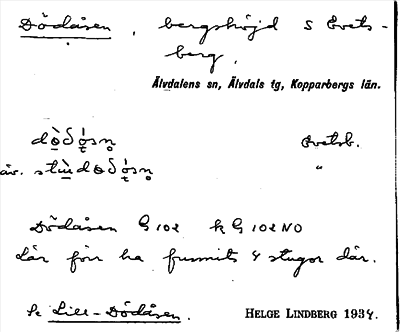 Dödåsen, bergshöjd S Evets-
berg,
Älvdalens sn, Älvdals tg, Kopparbergs län.
Evetsb.
äv. "
Dödåsen G 102 k G 102 NO
där förr ha funnits 4 stugor där.
Se Lill-Dödåsen. HELGE LINDBERG 1934.